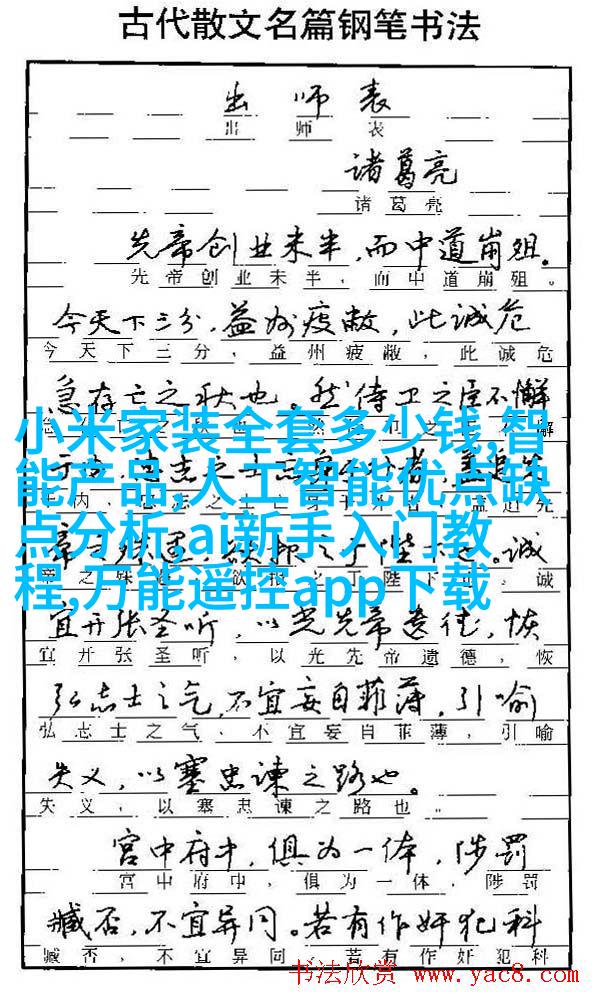 古代散文名篇钢笔书法
出师表
出师表
诸葛亮
诸葛亮
先帝创业未半,而中道崩殂。
先帝创业未半,而中道崩殂。
今天下三分,益州疲敝,此诚危
今天下三分,益州疲敝,此诚危
急存亡之秋也。然侍卫之臣不懈
小米家装全套多少钱,智
能产品,人工智能优点缺
点分析,ai新手入门教
程,万能遥控app下载
宜开张圣听,以光先帝遗德,恢
宜开张圣听,以光先帝遗德,恢
弘志士之气,不宜妄自菲薄,引喻
弘志士之气,不宜妄自菲薄,引喻
失义,以塞忠谏之路也。
失义,以塞忠谏之路也。
宫中府中,俱为一体,陟罚
宫中府中,俱为一体,陟罚
臧否,不宜异同。若有作奸犯科
臧否,不宜异同。若有作奸犯科
书法欣赏 www.yac8.com